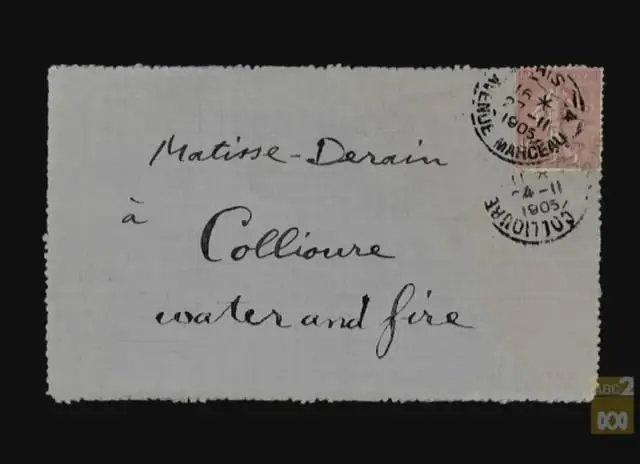 Matisse-Derain
à
Collioure
water and fire
AVENUE MARCEAU
1905
4-11
1905
COLLIOURE
ABC2